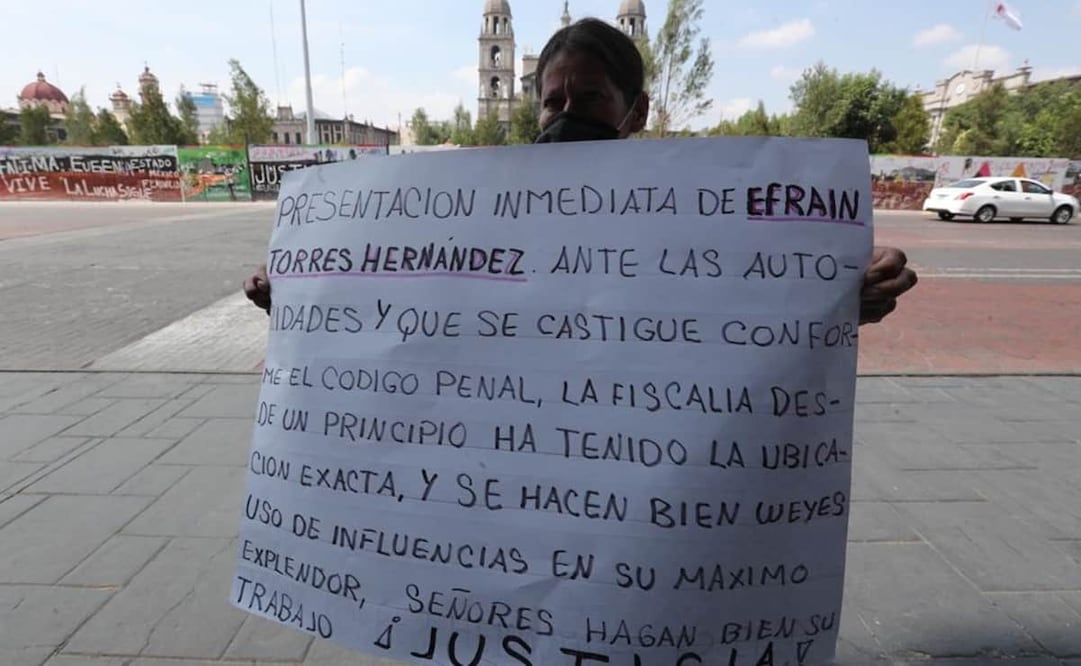 FATIMA. EUGENIA ESTADO
VIVE "LA LUCHA SIGUE
JUST
PRESENTACION INMEDIATA DE EFRAIN
TORRES HERNÁNDEZ. ANTE LAS AUTO-
IDADES Y QUE SE CASTIGUE CONFOR-
ME EL CODIGO PENAL, LA FISCALIA DES-
DE UN PRINCIPIO HA TENIDO LA UBICA-
CION EXACTA, Y SE HACEN BIEN WEYES
USO DE INFLUENCIAS EN SU MAXIMO
EXPLENDOR, SEÑORES HAGAN BIEN SU
TRABAJO ¡JUSTICIA!